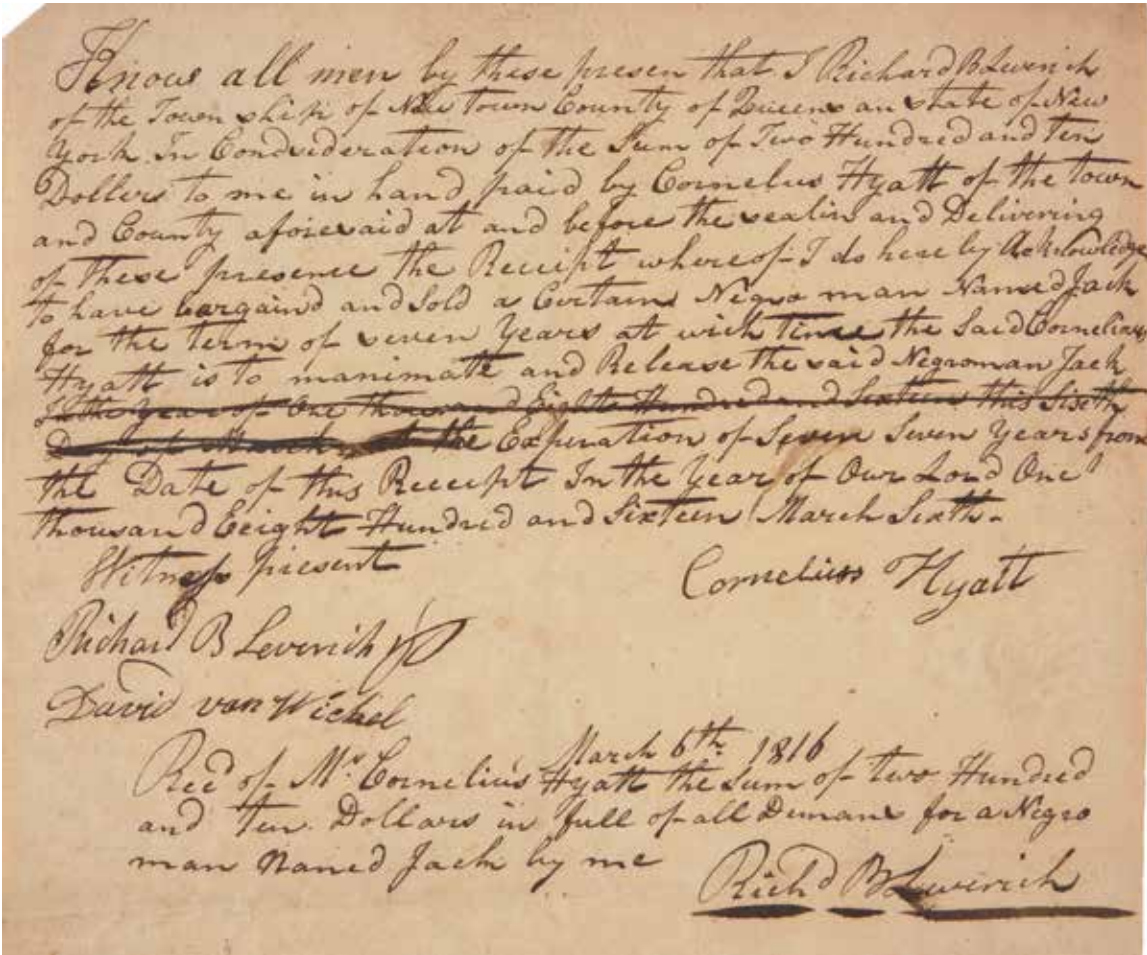 Know all men by these presen that I Richard B Leverich
of the Town ship of New town County of Queens an state of New
York In Condsideration of the Sum of Two Hundred and ten
Dollers to me in hand paid by Cornelius Hyatt of the town
and County aforesaid at and before the sealin and Delivering
of these presence the Receipt whereof I do here by Acknowledge
to have bargaind and Sold a Certain Negro man Named Jack
for the term of seven Years at wich time the Said Cornelius
Hyatt is to manimate and Release the said Negroman Jack
In the Year of One thousand Eight Hundred and Sixteen this Sixth
Day of March at the Experation of Seven Seven Years from
the Date of this Receipt In the Year of Our Lord One
thousand Eeight Hundred and Sixteen March Sixth-
Witness present
Cornelius Hyatt
Richard B Leverich
David van Wickel
March 6th 1816
Recd of Mr Cornelius Hyatt the Sum of two Hundred
and Ten Dollars in full of all Demans for a Negro
man Named Jack by me
Richd B Leverich